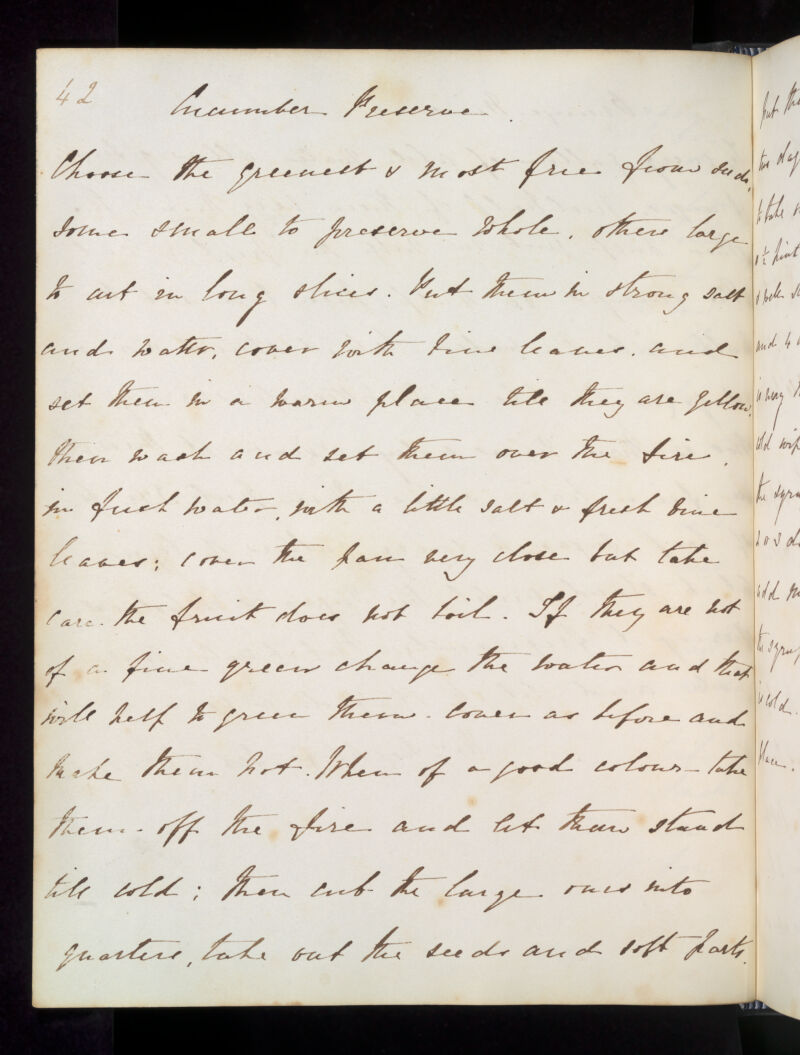 42
Cucumber Preserve.
Choose the greenest & most free from seeds,
some small to preserve whole, others large
to cut in long slices. Put them in strong salt
and water, cover with vine leaves, and
set them in a warm place till they are yellow,
then wash and set them over the fire
in fresh water, with a little salt & fresh vine
leaves; cover the pan very close but take
care the fruit does not boil. If they are not
of a fine green change the water and that
will help to green them. cover as before and
make them hot. When of a good colour take
them off the fire and let them stand
till cold; then cut the large ones into
quarters, take out the seeds and soft parts.
put the
two day
to take
and 4
the syru
2 or 3 d
add
the syrup
is cold.